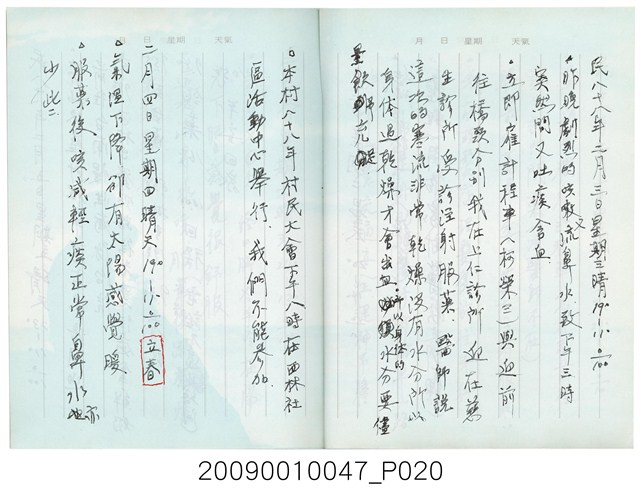 月 日 星期 天氣
民八十八年二月三日星期三晴19°-11°.0%00
。昨晚劇烈的咳嗽又流鼻水.致下午三時
突然間又吐痰含血
。立即雇計程車(柯榮三)與迎前
往橋頭分到我在上仁診所 迎在慈
生診所 與診注射服藥 醫師說
這次的寒流非常乾燥沒有水分所以
身体過乾燥才會出血 所以身体的水分要儘
量飲
月 日 星期 天氣
。本村八十八年村民大會下午八時在西林社
區活動中心舉行.我們不能參加.
二月四日星期四晴天19°-11°.0%00 立春
。氣溫下降 卻有太陽感覺暖
。服藥後咳減輕 痰正常鼻水亦
少些
20090010047_P020